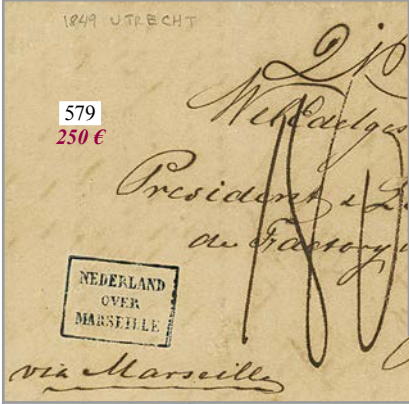 1849 UTRECHT
579
250 €
President &
de Factory
NEDERLAND
OVER
MARSEILLE
via Marseille